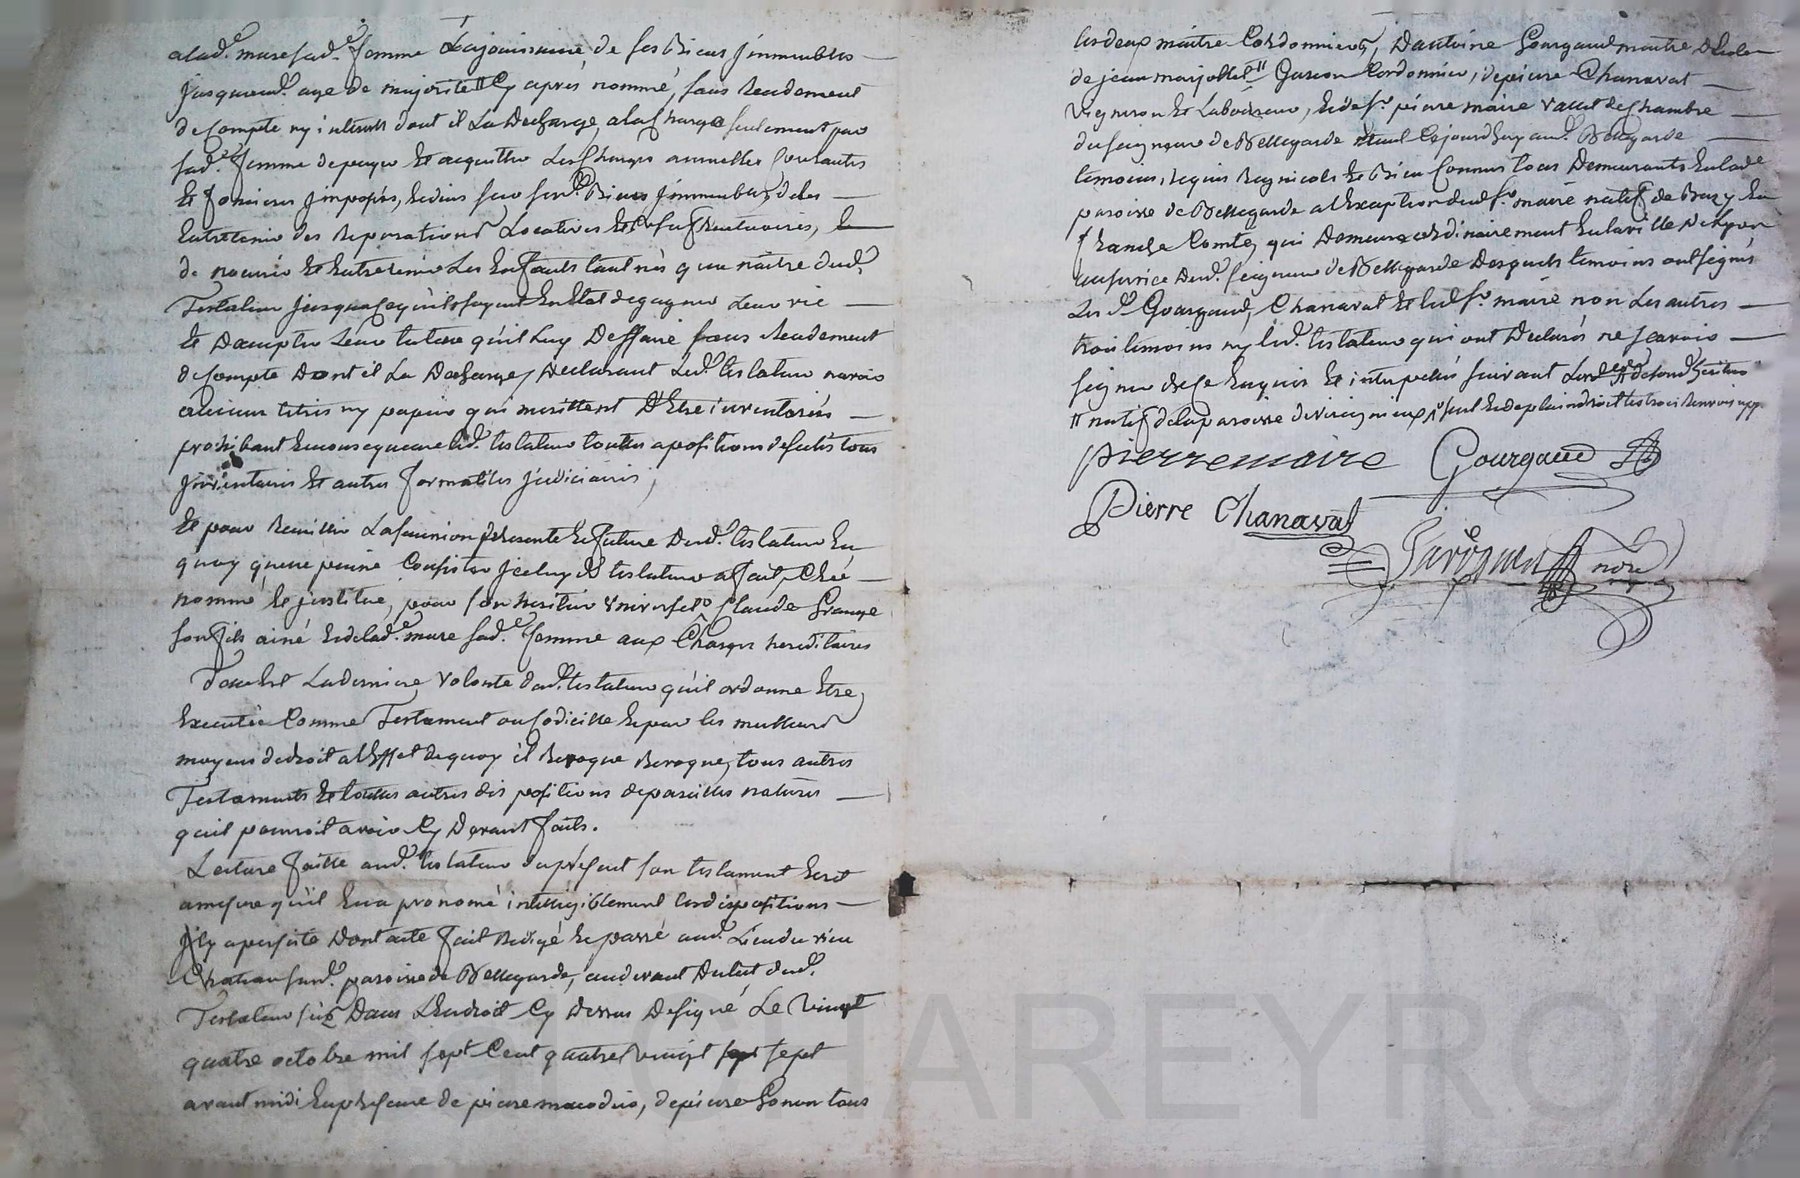 alad.e mure sad.e femme La jouissance de ses Biens jmmeubles
jusquaud. age de majorité Cy après nommé, sans Rendement
de Compte ny interests dont il La Decharge, ala Charge seulement par
sad.e femme de payer Et acquitter Les Charges annuelles
Et foncieres jmposés, sur sesd. Biens jmmeubles, de les
Entretenir des Reparations Locatives Et usufructuaires,
de nourrir Et Entretenir Les Enfants tant nés qua naitre dud.
Testateur jusquaceqúils soyent En Etat de gagner Leur vie
Et Daccepter Leur tutelle qúil Luy Defferre sans Rendement
de Compte Dont il La Decharge, Declarant Led. testateur navoir
aucuns titres ny papiers qui merittent D'Etre inventoriés
prohibant En consequence led. testateur touttes apositions de scelés tous
jnventaires Et autres formalites judiciaires,
Et pour Recuillir La succession presente Et future Dud. testateur En
quoy quelle puisse Consister jceluy d. testateur a fait, Créé
nommé, Et jnstitué, pour son heritier Universel Claude Grange
son fils ainé Et de lad.e mure sad.e femme aux Charges hereditaires
Telle Est La derniere Volonté dud. testateur qúil ordonne Etre
Executée Comme Testament ou Codicille Et par les meilleurs
moyens de droit a lEffet de quoy il Revoque Revoque, tous autres
Testaments Et touttes autres dispositions de pareilles natures
quil pourroit avoir Cy Devant faits.
Lecture faitte aud. testateur du présent son testament Ecrit
amesure qúil En a pronomé intelligiblement les dispositions
jl y a persisté Dont acte fait Redigé Et passé aud. Lieu du vieu
Chateau susd. paroisse de Bellegarde, au devant du lict dud.
Testateur sis Dans Lendroit Cy dessus Designé, Le Vingt
quatre octobre mil sept Cent quatre vingt sept
avant midi En presence de pierre, de pierre Gonon tous
les deux maitre Cordonniers, Dantoine Gourgaud maitre
de jean marjollet Garcon Cordonnier, de pierre Chanavat
Vigneron Et Laboureur, Et de s.r pierre maire valet de Chambre
du seigneur de Bellegarde Etant Cejourdhuy aud. Bellegarde
temoins, Requis Regnicoles Et Bien Connus tous Demeurants En lad.e
paroisse de Bellegarde a lException dud s.r maire natif de
franche Comté, qui Demeure ordinairement En la ville de Lyon
au service Dud. seigneur de Bellegarde Desquels temoins ont signés
Les d. Gourgaud, Chanavat Et led s.r maire non Les autres
trois temoins ny led. testateur qui ont Declarés ne scavoir
signer de ce Enquis Et interpellés suivant
natif de la paroisse de
pierre maire Gourgaud
Pierre Chanavat
nore
CHAREYRON